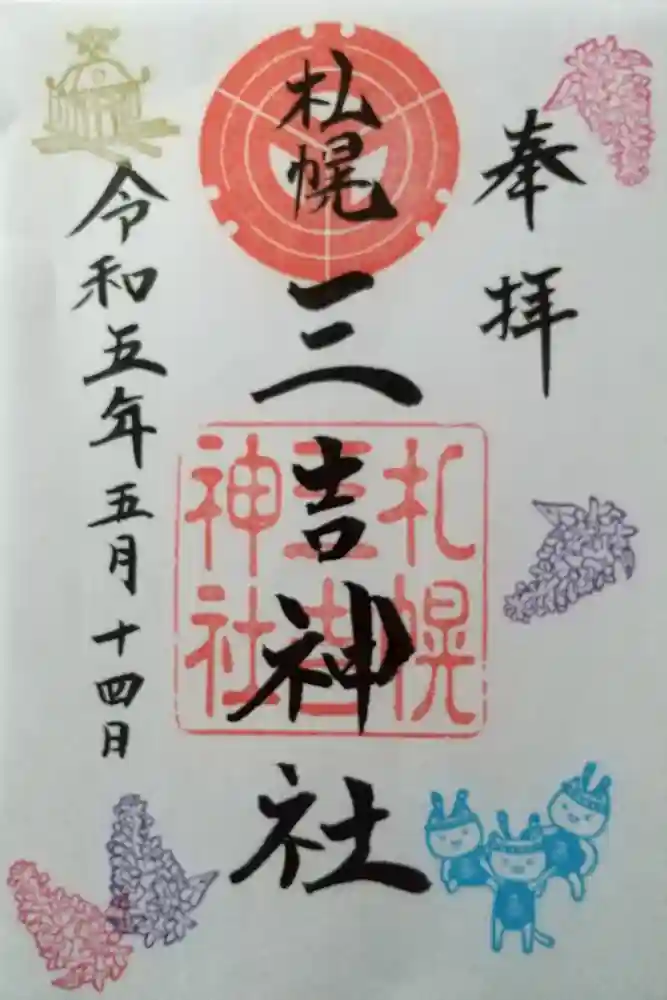 奉拝
札幌
三吉神社
札幌
三吉
神社
令和五年五月十四日